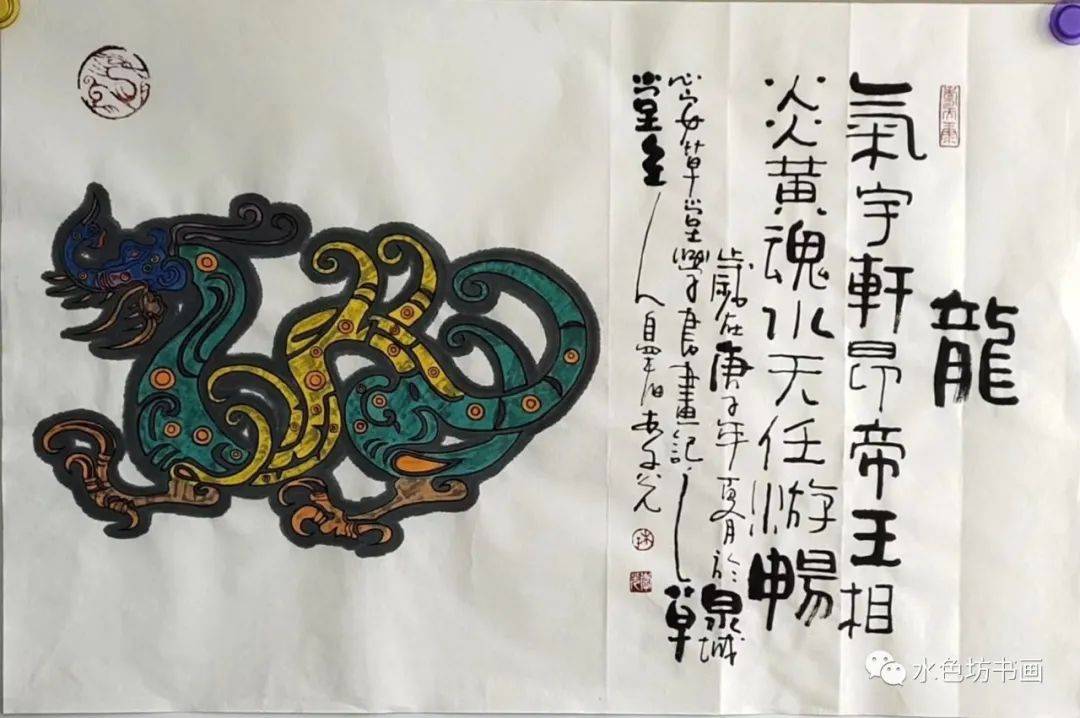 龍
氣宇軒昂帝王相
炎黄魂水天任游暢
歲在庚子年夏月於泉城
心安草堂學書畫記
草
堂主
水色坊书画